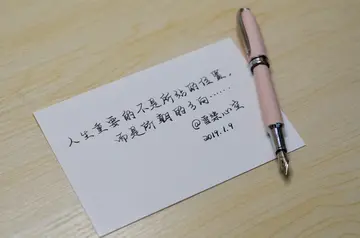 人生重要的不是所站的位置,
而是所朝的方向……
2019.1.9